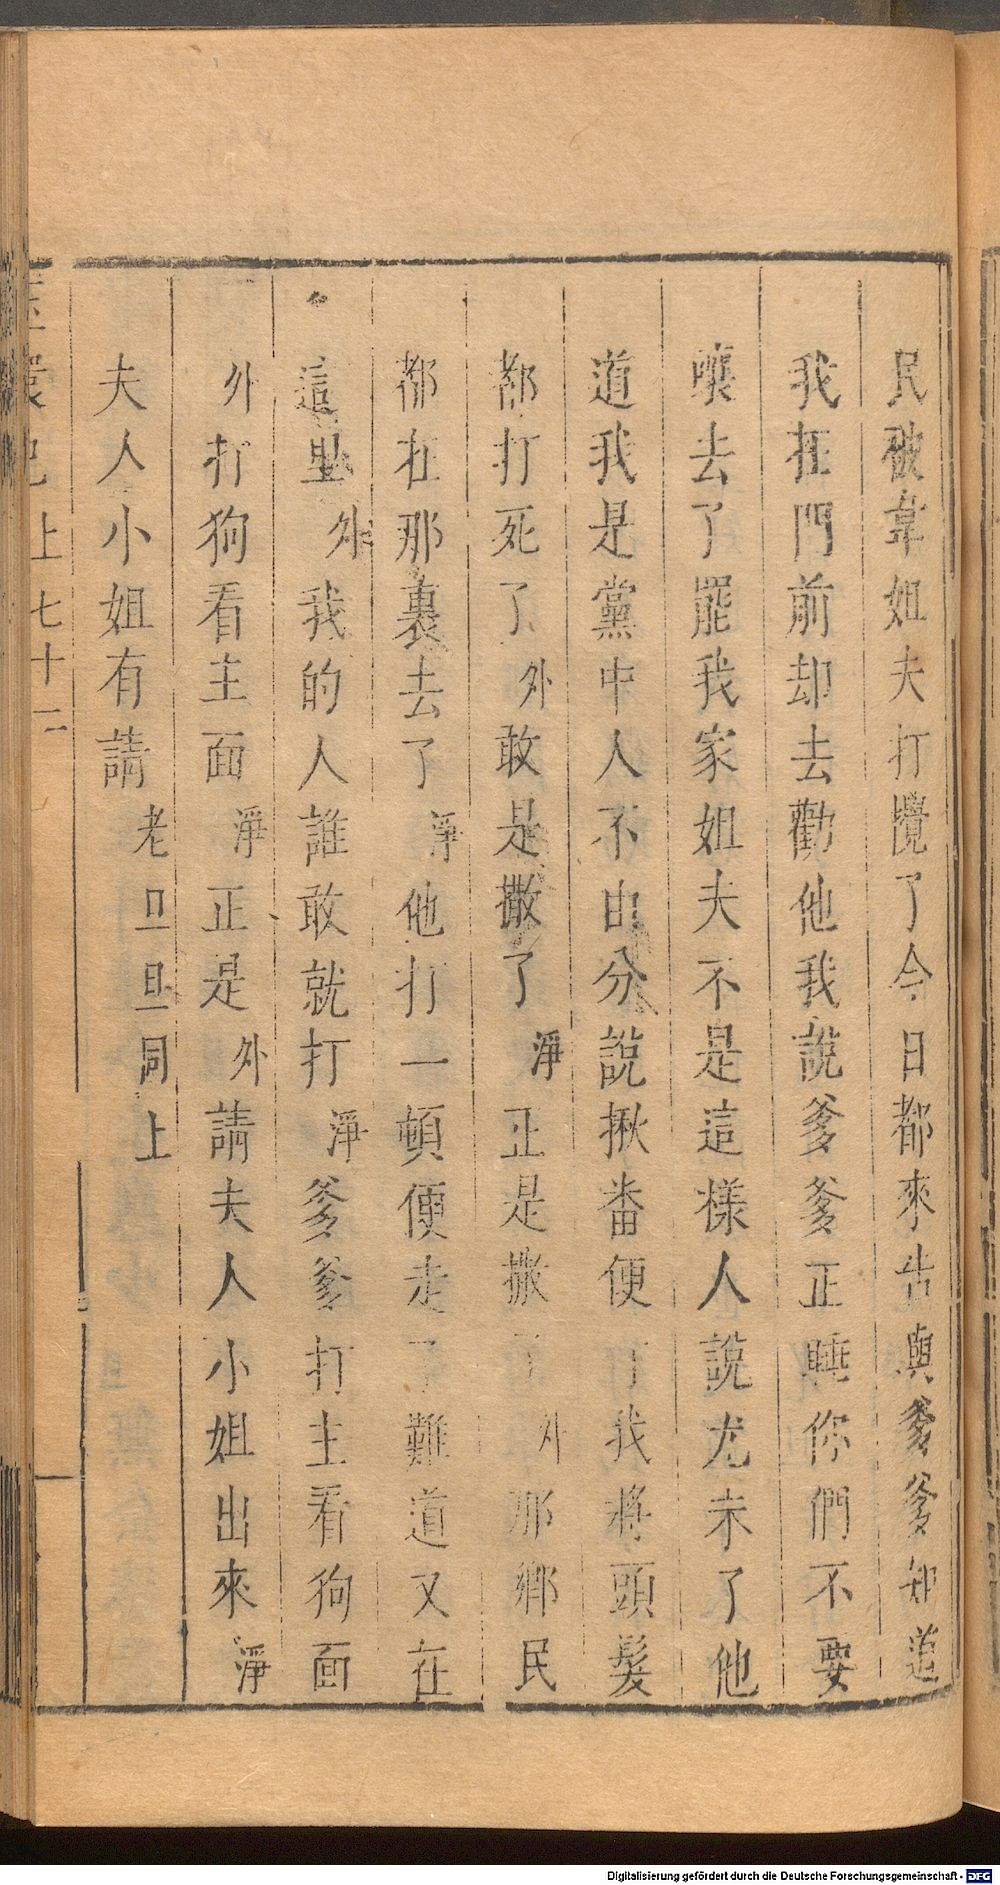 民被韋姐夫打攪了今日都來告與爹爹知道
我在門前却去勸他我說爹爹正睡你們不要
嚷去了罷我家姐夫不是這樣人說尤未了他
道我是黨中人不由分說揪畨便打我將頭髮
都打死了外敢是撒了淨正是撒了外那鄉民
都在那裏去了淨他打一頓便走了難道又在
這里外我的人誰敢就打淨爹爹打主看狗面
外打狗看主面淨正是外請夫人小姐出來淨
夫人小姐有請老旦旦同上
環記上七十二
Digitalisierung gefördert durch die Deutsche Forschungsgemeinschaft - DFG